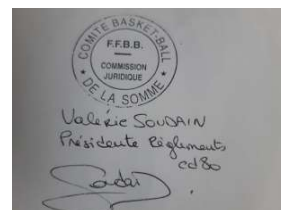 COMITE BASKET-BALL
F.F.B.B.
COMMISSION
JURIDIQUE
* DE LA SOMME *
Valérie SOUDAIN
Présidente Règlements
cd80